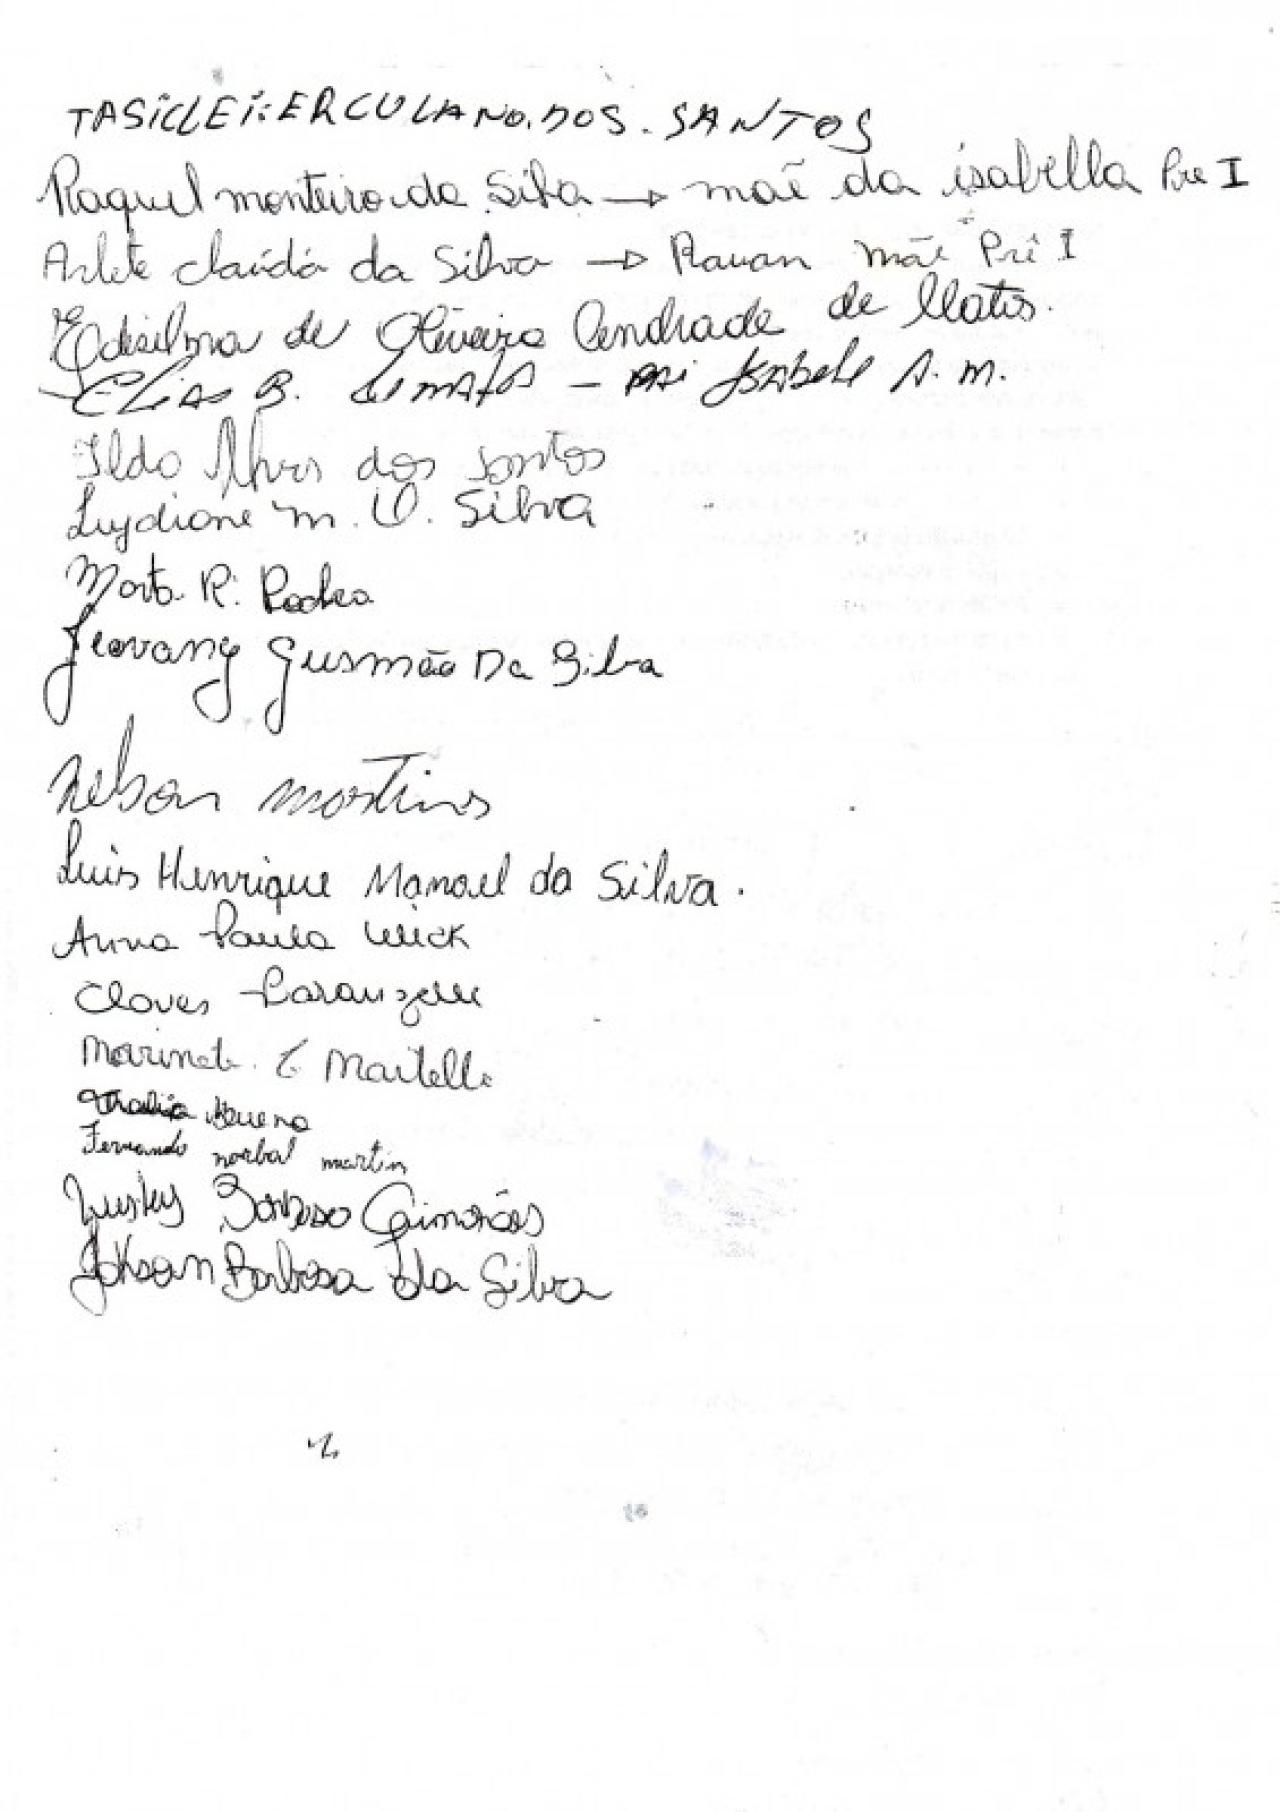 TASICLEI: ERCULANO. DOS. SANTOS
Raquel monteiro da Silva → maẽ da isabella Pre I
Arlete claúdá da Silva → Rauan mãe Prê I
Edisilma de Oliveira Andrade de Matos.
Elias B. de matos - pai Isabele A. M.
Ildo Alves dos Santos
Luydiane m. O. Silva
Marta R. Rocha
Jeovany Gusmão Da Silva
Nelson martins
Luis Henrique Manoel da Silva.
Anna Paula Wick
Cloves
Marinete E Martelli
Bueno
Fernando norbal martin
Barboso Guimarães
Barbosa da Silva